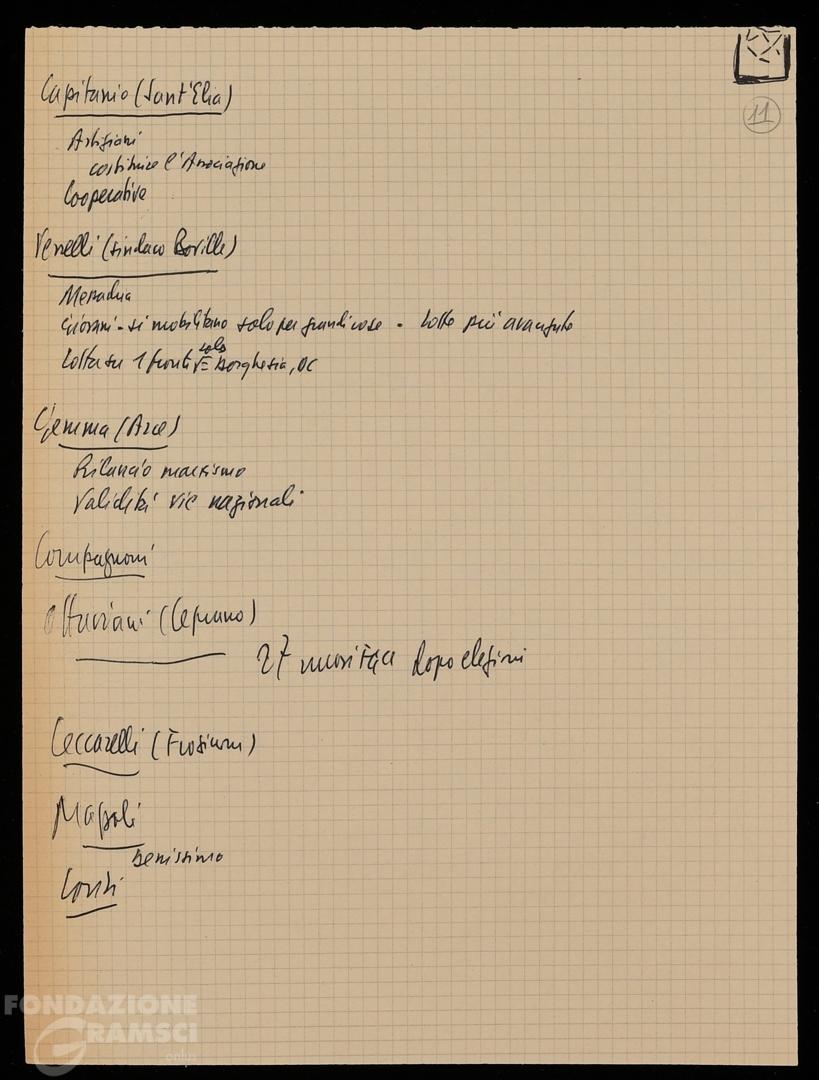 11
Capitanio (Sant'Elia)
Artigiani
costituire l'Associazione
Cooperative
Venelli (sindaco Boville)
Mezzadria
Giovani - si mobilitano solo per grandi cose - lotte più avanzate
Lotta su 1 fronte solo Borghesia, DC
Gemma (Arce)
Rilancio marxismo
Validità vie nazionali
Compagnoni
Ottaviani (Ceprano)
27 dopo elezioni
Ceccarelli (Frosinone)
benissimo
FONDAZIONE
GRAMSCI
onlus